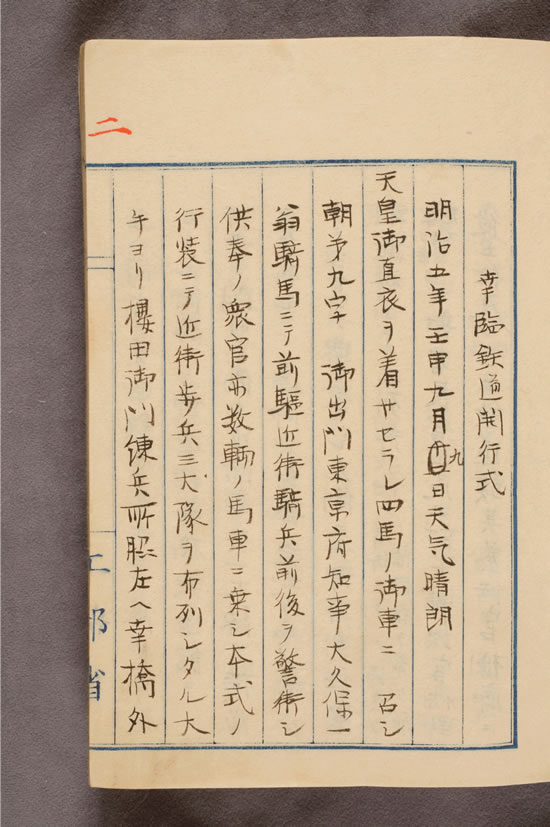 幸臨鉄道開行式
明治五年壬申九月九日天気晴朗
天皇御直衣ヲ着サセラレ四馬ノ御車ニ 召シ
朝第九字 御出門東京府知事大久保一
翁騎馬ニテ前驅近衛騎兵前後ヲ警衛シ
供奉ノ衆官亦数輌ノ馬車ニ乗シ本式ノ
行装ニテ近衛歩兵三大隊ヲ布列シタル大
手ヨリ櫻田御門練兵所脇左ヘ幸橋外
二
工部省